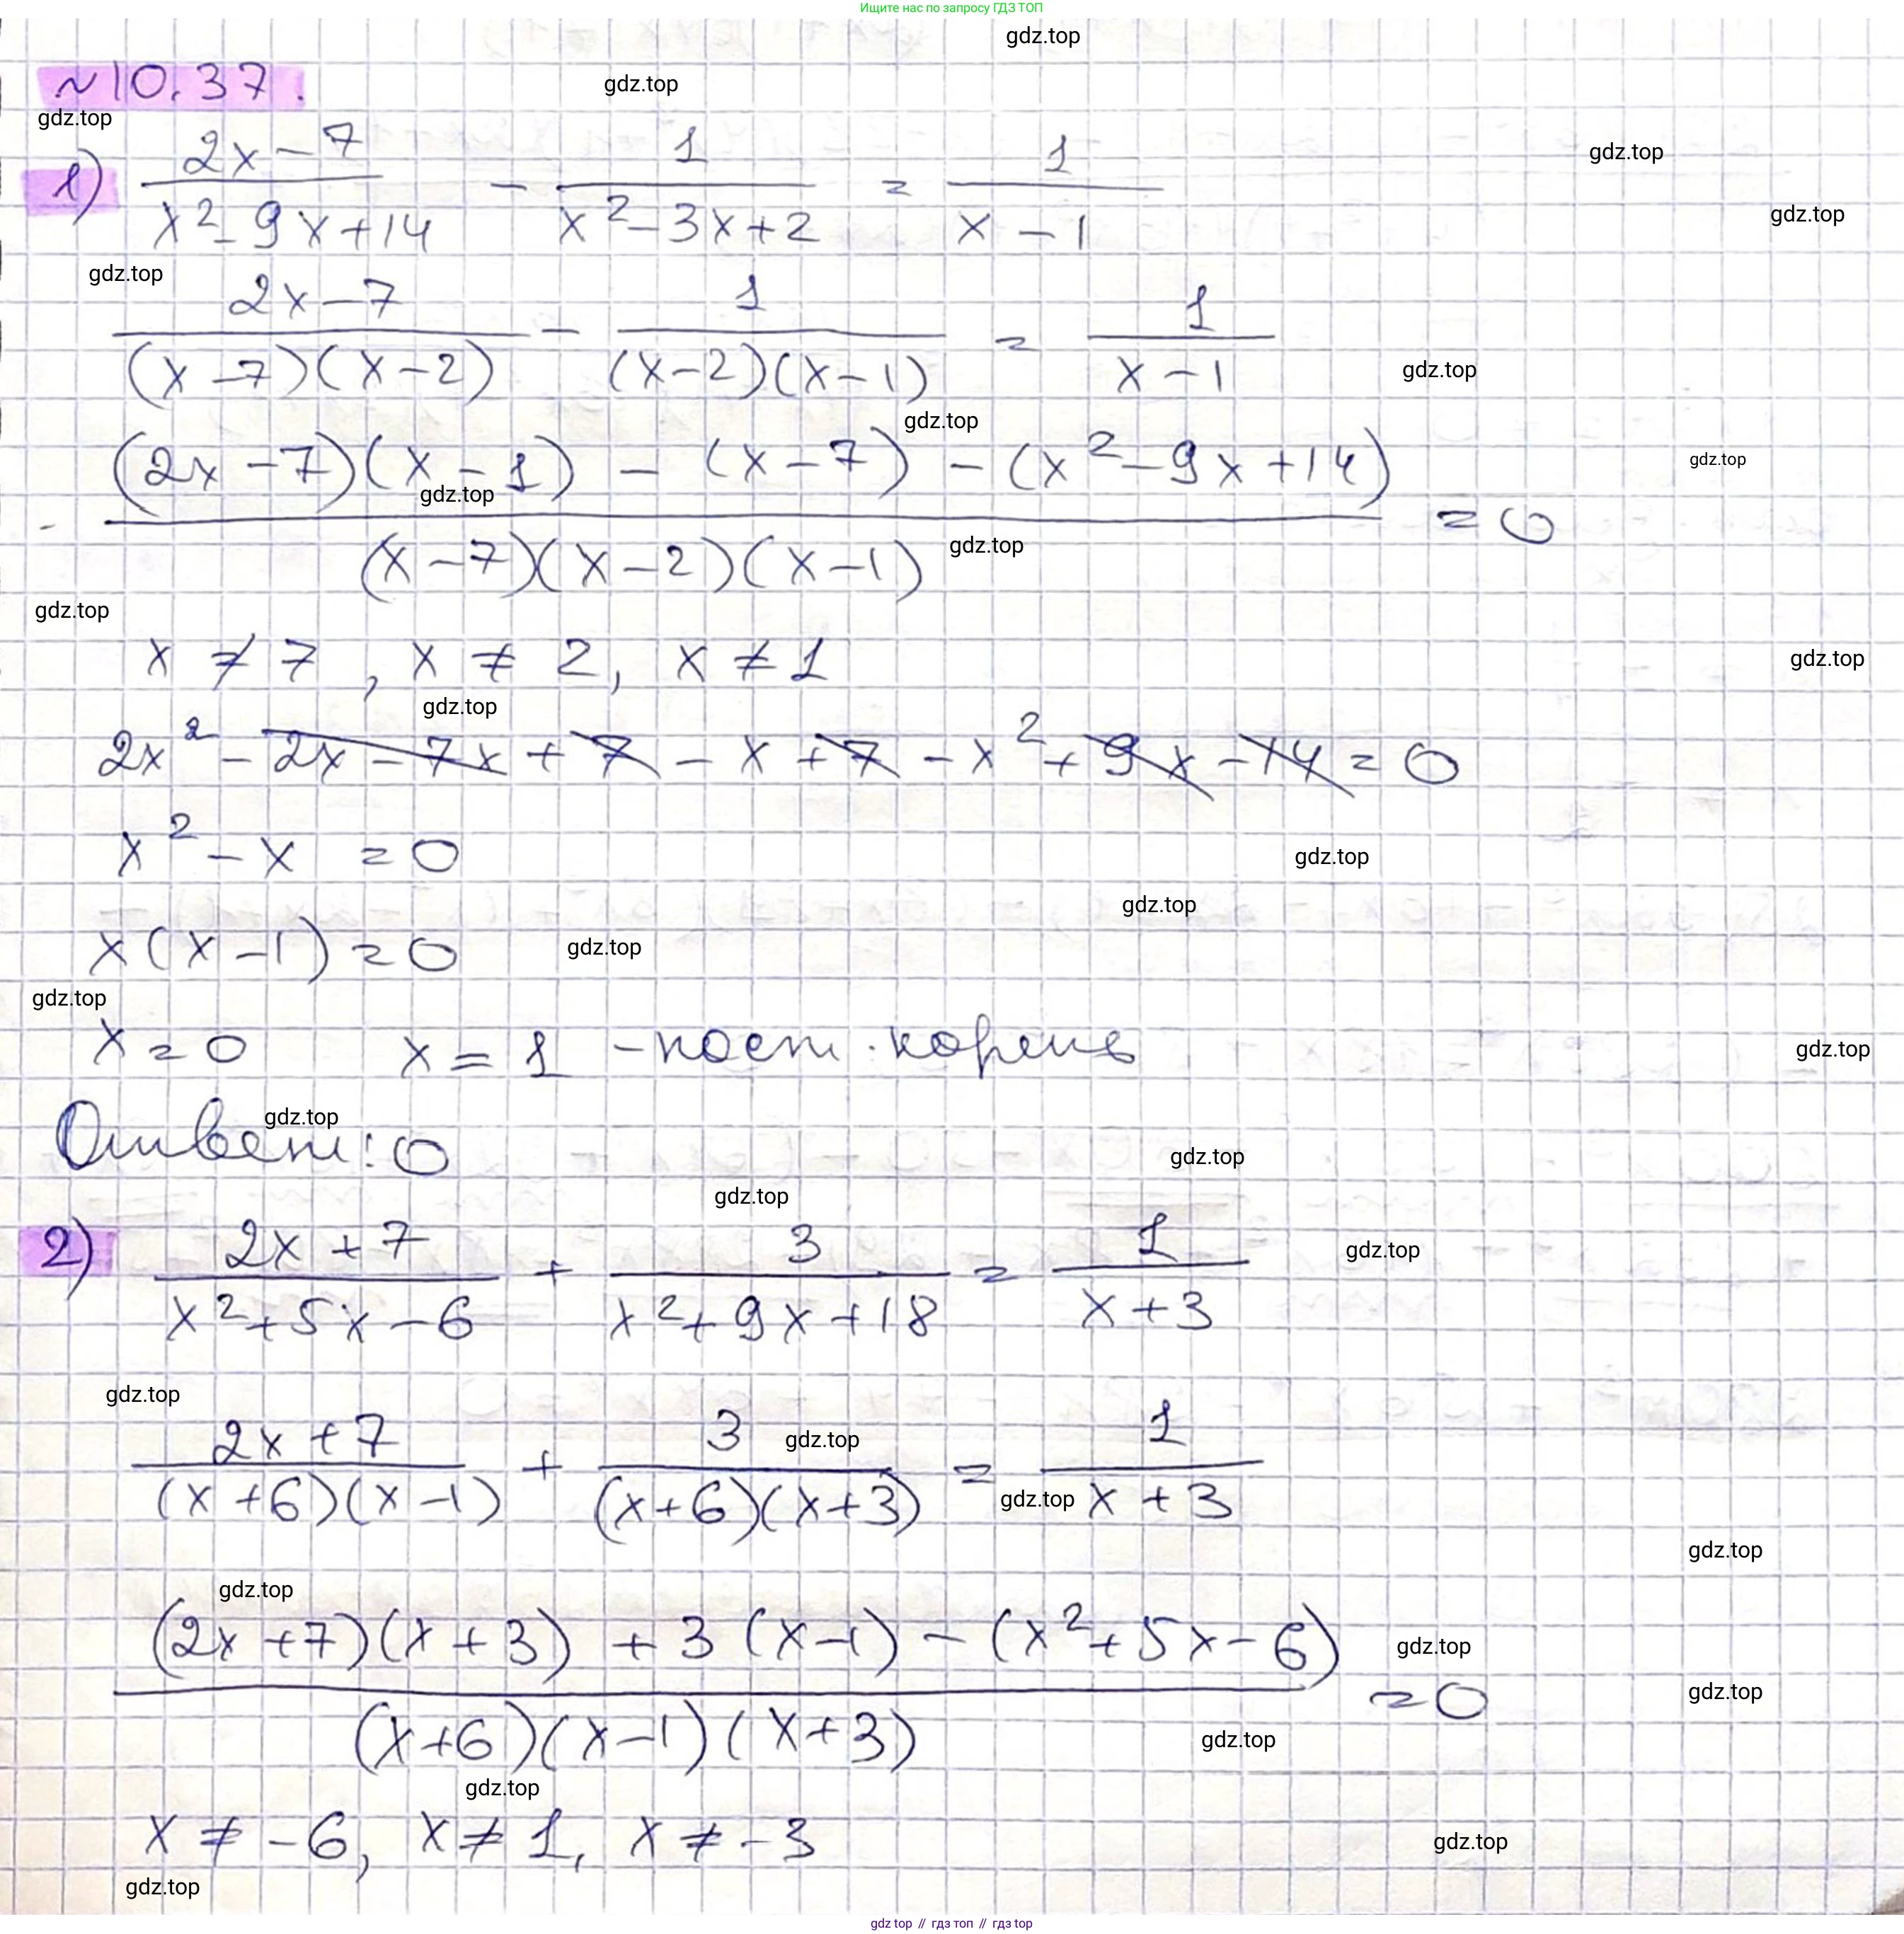 Ищите нас по запросу ГДЗ ТОП
gdz.top
№10.37.
gdz.top
gdz.top
1) (2x-7)/(x²-9x+14) - 1/(x²-3x+2) = 1/(x-1)
gdz.top
gdz.top
gdz.top
(2x-7)/((x-7)(x-2)) - 1/((x-2)(x-1)) = 1/(x-1)
gdz.top
gdz.top
((2x-7)(x-1) - (x-7) - (x²-9x+14))/((x-7)(x-2)(x-1)) = 0
gdz.top
gdz.top
gdz.top
gdz.top
x ≠ 7, x ≠ 2, x ≠ 1
gdz.top
gdz.top
2x² - 2x - 7x + 7 - x + 7 - x² + 9x - 14 = 0
x² - x = 0
gdz.top
gdz.top
x(x-1) = 0
gdz.top
gdz.top
x = 0 x = 1 - пост. корень
gdz.top
gdz.top
Ответ: 0
gdz.top
gdz.top
2) (2x+7)/(x²+5x-6) + 3/(x²+9x+18) = 1/(x+3)
gdz.top
gdz.top
(2x+7)/((x+6)(x-1)) + 3/((x+6)(x+3)) = 1/(x+3)
gdz.top
gdz.top
gdz.top
gdz.top
((2x+7)(x+3) + 3(x-1) - (x²+5x-6))/((x+6)(x-1)(x+3)) = 0
gdz.top
gdz.top
gdz.top
gdz.top
x ≠ -6, x ≠ 1, x ≠ -3
gdz.top
gdz.top
gdz top // гдз топ // гдз top